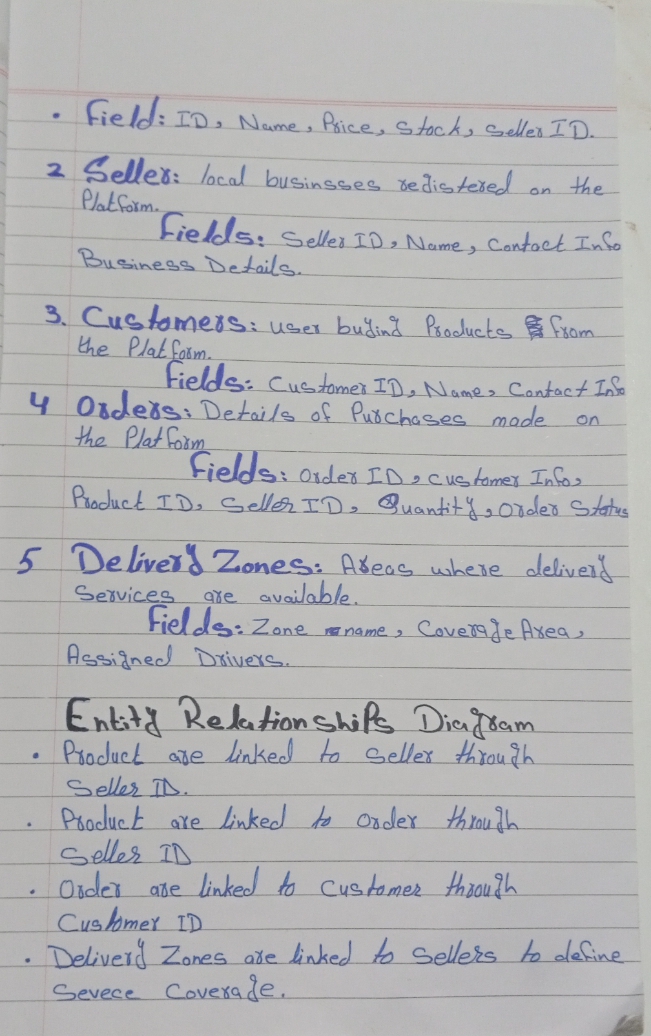 • Field: ID, Name, Price, Stock, Seller ID.
2 Seller: local businsses redistered on the
Platform.
Fields: Seller ID, Name, Contact Info
Business Details.
3. Customers: user buying Products from
the Platform.
Fields: Customer ID, Name, Contact Info
4 Orders: Details of Purchases made on
the Platform
Fields: Order ID, customer Info,
Product ID, Seller ID, Quantity, Order Status
5 Delivery Zones: Areas where delivery
Services are available.
Fields: Zone name, Coverage Area,
Assigned Drivers.
Entity Relationships Diagram
• Product are linked to Seller through
Seller ID.
• Product are linked to order through
Seller ID
• Order are linked to Customer through
Customer ID
• Delivery Zones are linked to Sellers to define
Sevece Coverage.